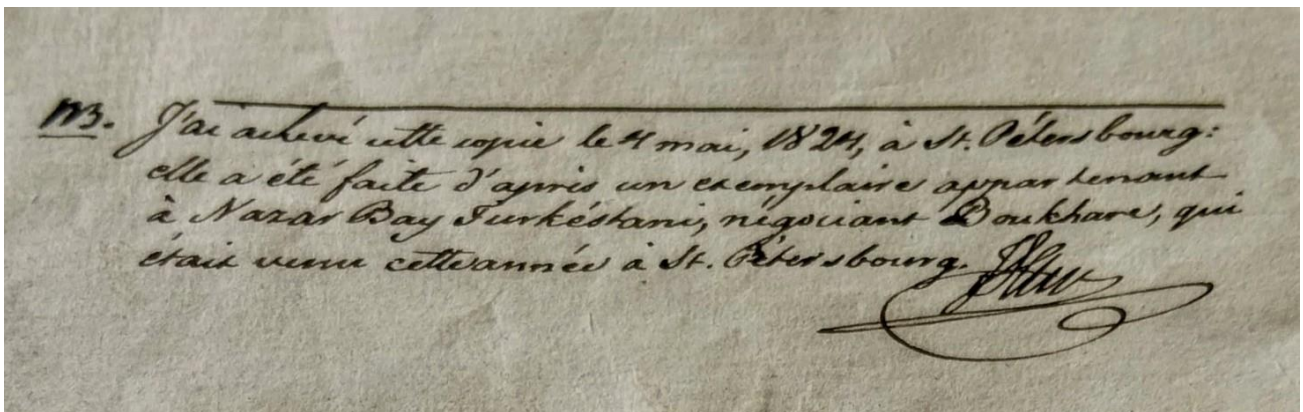 NB. J'ai achevé cette copie le 4 mai, 1824, à St. Pétersbourg:
elle a été faite d'après un exemplaire appartenant
à Nazar Bay Turkéstani, négociant Boukhare, qui
était venu cette année à St. Pétersbourg.